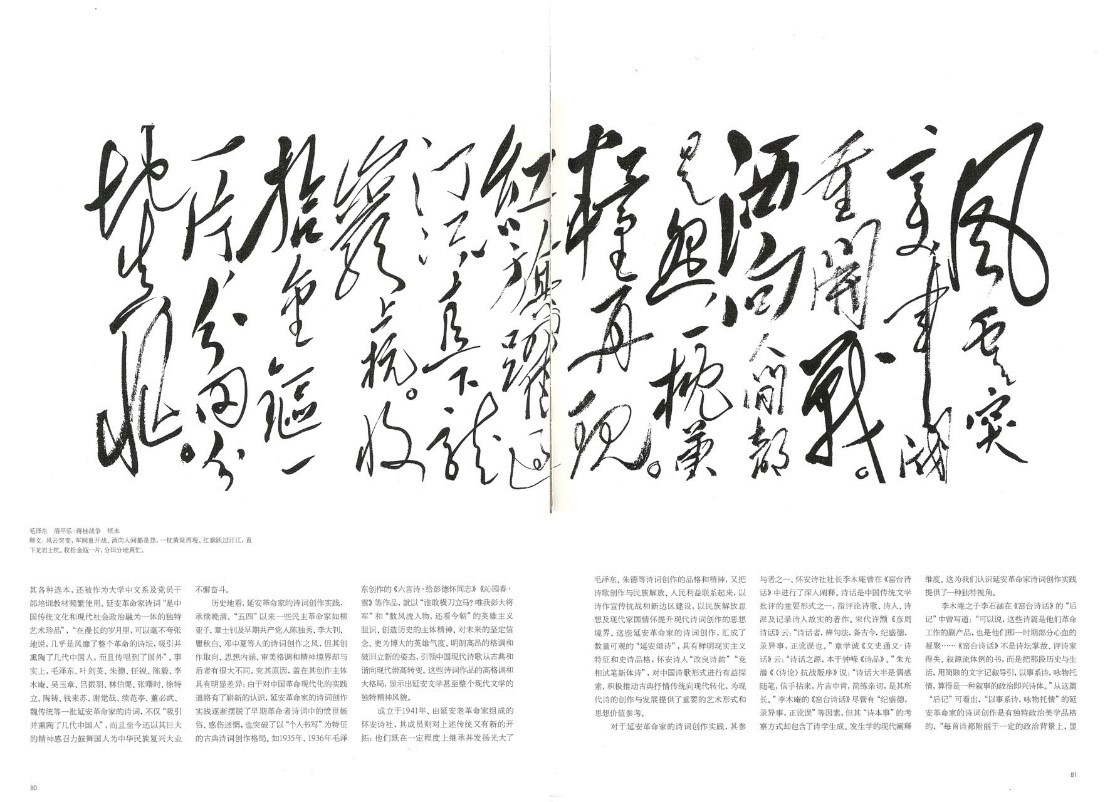 风云突
变军阀
重開戰。
洒向人间都
是怨，一枕黄
粱再现。
红旗躍過
汀江，直下龙
巖上杭。收
拾金甌一
片，分田分
地真忙。
毛泽东 清平乐·蒋桂战争 纸本
释文：风云突变，军阀重开战。洒向人间都是怨，一枕黄粱再现。红旗跃过汀江，直
下龙岩上杭。收拾金瓯一片，分田分地真忙。
其各种选本，还被作为大学中文系及党员干
部培训教材频繁使用。延安革命家诗词“是中
国传统文化和现代社会政治融为一体的独特
艺术珍品”，“在漫长的岁月里，可以毫不夸张
地说，几乎是风靡了整个革命的诗坛，吸引并
熏陶了几代中国人，而且传唱到了国外”。事
实上，毛泽东、叶剑英、朱德、任锐、陈毅、李
木庵、吴玉章、吕振羽、林伯渠、张曙时、徐特
立、陶铸、钱来苏、谢觉哉、续范亭、董必武、
魏传统等一批延安革命家的诗词，不仅“吸引
并熏陶了几代中国人”，而且至今还以其巨大
的精神感召力鼓舞国人为中华民族复兴大业
不懈奋斗。
历史地看，延安革命家的诗词创作实践，
承续晚清、“五四”以来一些民主革命家如柳
亚子、章士钊及早期共产党人陈独秀、李大钊、
瞿秋白、邓中夏等人的诗词创作之风，但其创
作取向、思想内涵、审美格调和精神境界却与
后者有很大不同。究其原因，盖在其创作主体
具有明显差异：由于对中国革命现代化的实践
道路有了崭新的认识，延安革命家的诗词创作
实践逐渐摆脱了早期革命者诗词中的愤世嫉
俗、感伤迷惘，也突破了以“个人书写”为特征
的古典诗词创作格局。如1935年、1936年毛泽
东创作的《六言诗·给彭德怀同志》《沁园春·
雪》等作品，就以“谁敢横刀立马？唯我彭大将
军”和“数风流人物，还看今朝”的英雄主义
胆识、创造历史的主体精神，对未来的坚定信
念、更为博大的英雄气度、明朗高昂的格调和
破旧立新的姿态，引领中国现代诗歌从古典和
谐向现代崇高转变。这些诗词作品的高格调和
大格局，显示出延安文学甚至整个现代文学的
独特精神风貌。
成立于1941年、由延安老革命家组成的
怀安诗社，其成员则对上述传统又有新的开
拓：他们既在一定程度上继承并发扬光大了
毛泽东、朱德等诗词创作的品格和精神，又把
诗歌创作与民族解放、人民利益联系起来，以
诗作宣传抗战和新边区建设，以民族解放思
想及现代家国情怀提升现代诗词创作的思想
境界。这些延安革命家的诗词创作，汇成了
数量可观的“延安雅诗”，具有鲜明现实主义
特征和史诗品格；怀安诗人“改良诗韵”“竞
相试笔新体诗”，对中国诗歌形式进行有益探
索，积极推动古典抒情传统向现代转化，为现
代诗的创作与发展提供了重要的艺术形式和
思想价值参考。
对于延安革命家的诗词创作实践，其参
与者之一、怀安诗社社长李木庵曾在《窑台诗
话》中进行了深入阐释。诗话是中国传统文学
批评的重要形式之一，指评论诗歌、诗人、诗
派及记录诗人故实的著作。宋代许顗《彦周
诗话》云：“诗话者，辨句法，备古今，纪盛德，
录异事，正讹误也。”章学诚《文史通义·诗
话》云：“诗话之源，本于钟嵘《诗品》。”朱光
潜《〈诗论〉抗战版序》说：“诗话大半是偶感
随笔，信手拈来，片言中肯，简练亲切，是其所
长。”李木庵的《窑台诗话》尽管有“纪盛德，
录异事，正讹误”等因素，但其“诗本事”的考
察方式却包含了诗学生成、发生学的现代阐释
维度。这为我们认识延安革命家诗词创作实践
提供了一种独特视角。
李木庵之子李石涵在《窑台诗话》的“后
记”中曾写道：“可以说，这些诗篇是他们革命
工作的副产品，也是他们那一时期部分心血的
凝聚……《窑台诗话》不是诗坛掌故、评诗家
得失、叙源流体例的书，而是把那段历史与生
活，用简颢的文字记叙导引，以事系诗，咏物托
情，算得是一种叙事的政治即兴诗体。”从这篇
“后记”可看出，“以事系诗，咏物托情”的延
安革命家的诗词创作是有独特政治美学品格
的，“每首诗都附丽于一定的政治背景上，显
80
81